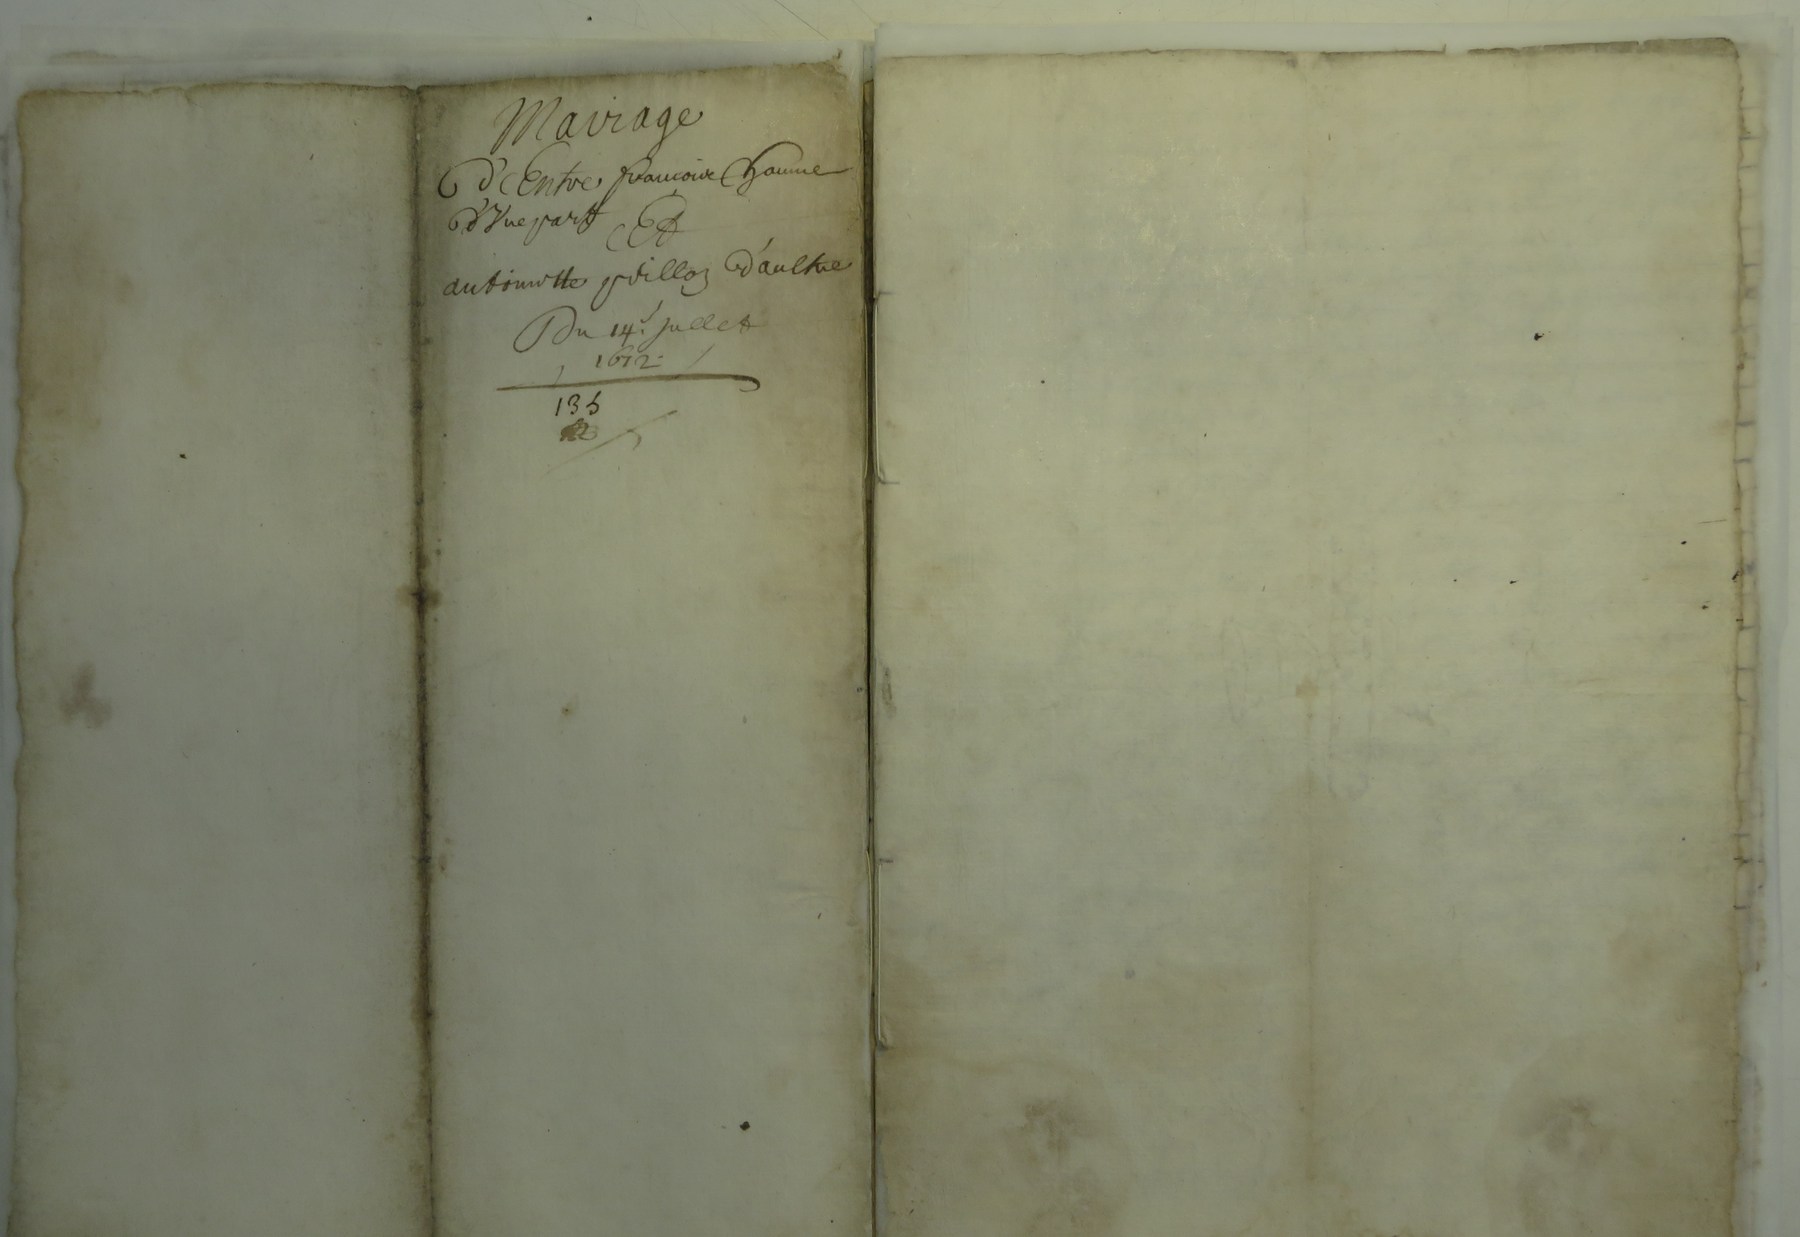 Mariage
D'Entre francoise Chaune
D'Vne part Et
anthoinette D'aultre
Du 14e Jullet
1672
135